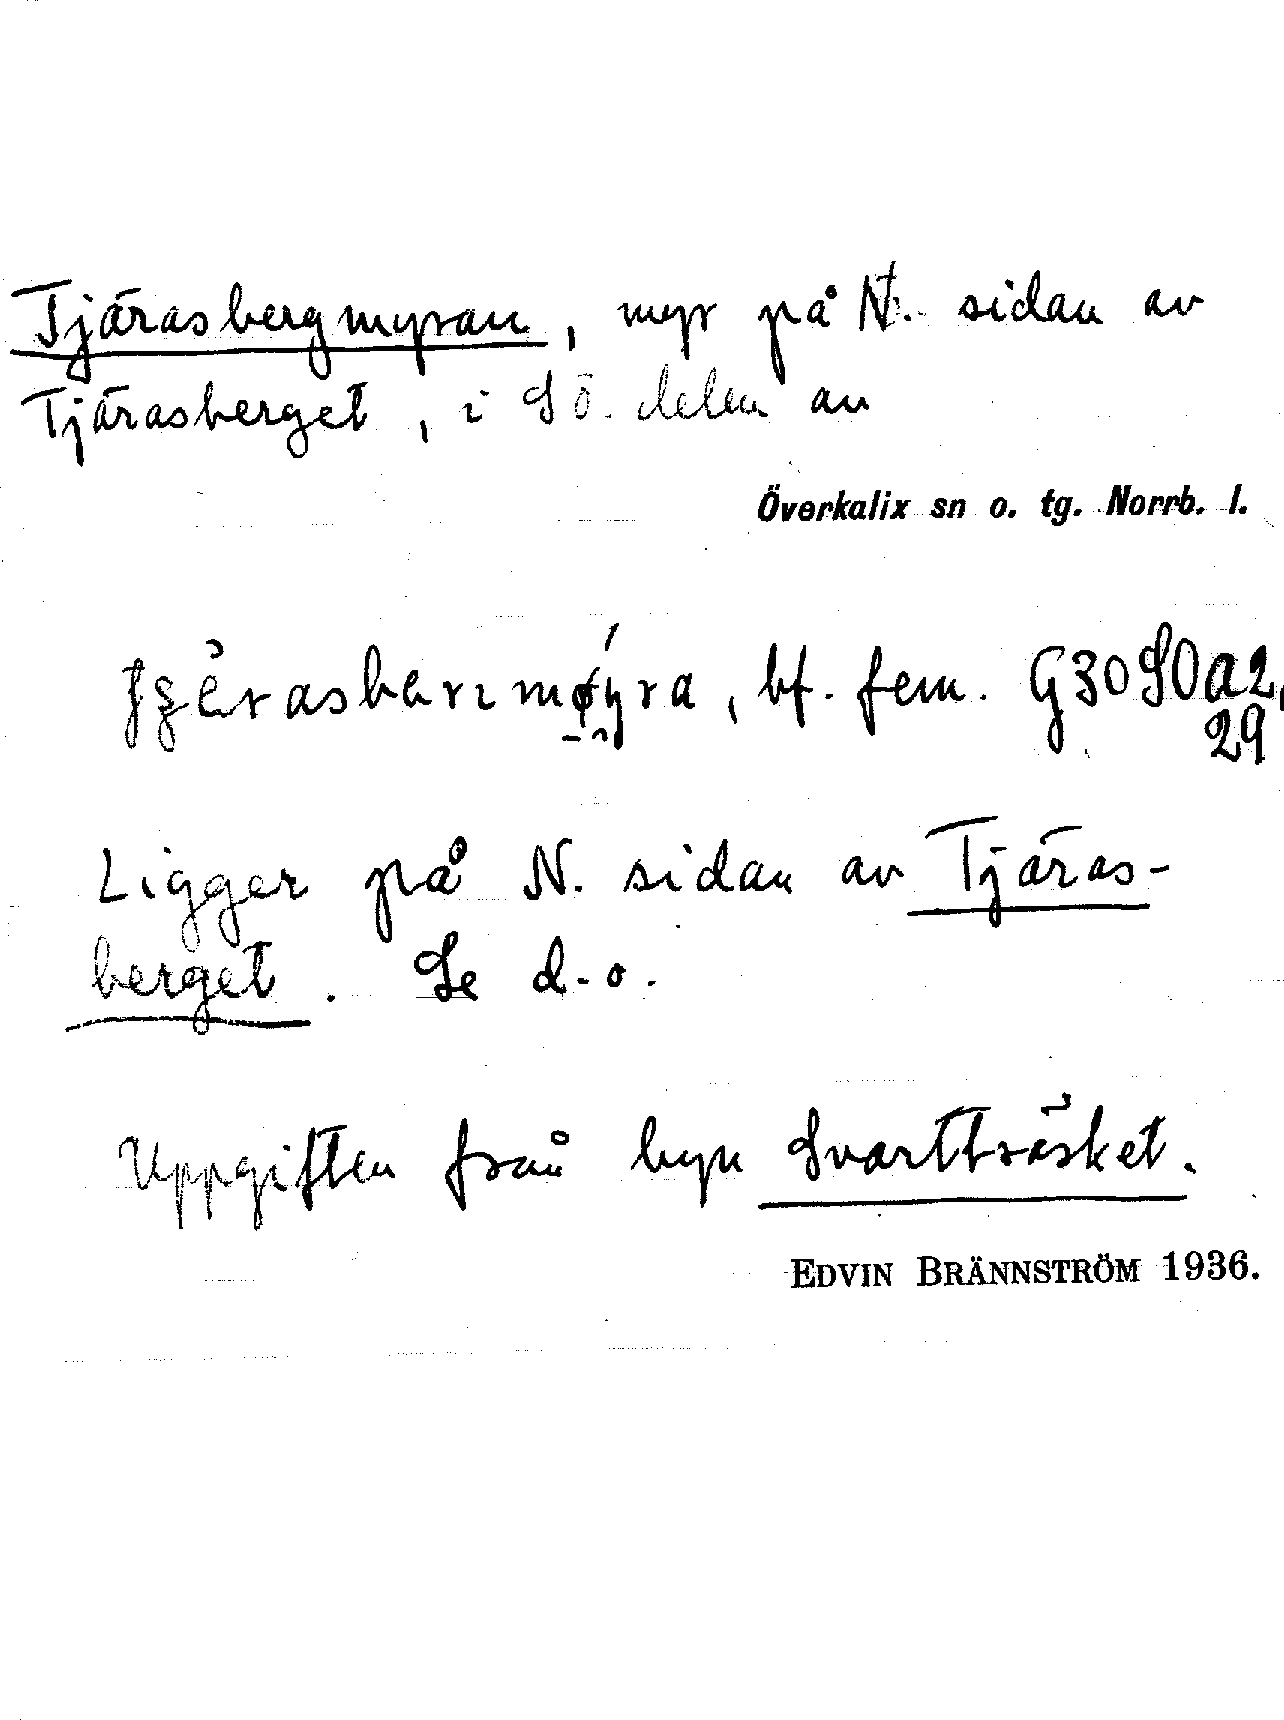 Tjärasbergmyran, myr på N. sidan av
Tjärasberget, i SÖ. delen av
Överkalix sn o. tg. Norrb. l.
bf. fem. G30S0a2,
29
Ligger på N. sidan av Tjäras-
berget. Se d.o.
Uppgiften från byn Svartträsket.
EDVIN BRÄNNSTRÖM 1936.